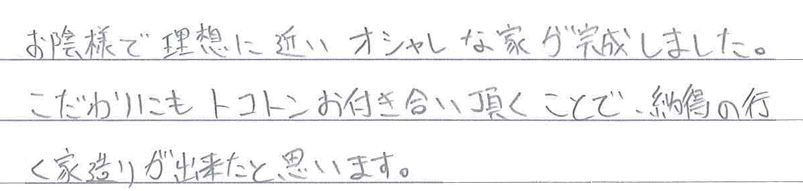 お陰様で理想に近いオシャレな家が完成しました。
こだわりにもトコトンお付き合い頂くことで、納得の行
く家造りが出来たと思います。